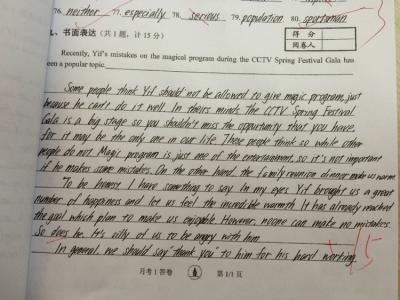 76. neither 77. especially 78. serious 79. population 80. sportsman
、书面表达（共1题，计15分）
得 分
阅卷人
Recently, Yif's mistakes on the magical program during the CCTV Spring Festival Gala has
been a popular topic.
Some people think Yif should not be allowed to give magic program, just
because he can't do it well. In theirs minds. The CCTV Spring Festival
Gala is a big stage so you shouldn't miss the oppurtunity that you have,
for it may be the only one in our life. These people think so while other
people do not. Magic program is just one of the entertainment, so it's not important
if he makes some mistakes. On the other hand, the family reunion dinner make us warm.
To be honest, I have something to say. In my eyes, Yif brought us a great
number of happiness and let us feel the incredible warmth. It has already reached
the goal which plan to make us enjoyable. However, noone can make no mistakes.
So does he. It's silly of us to be angry with him.
In general, we should say "thank you" to him for his hard working.
15
月考1答卷
第1/1页